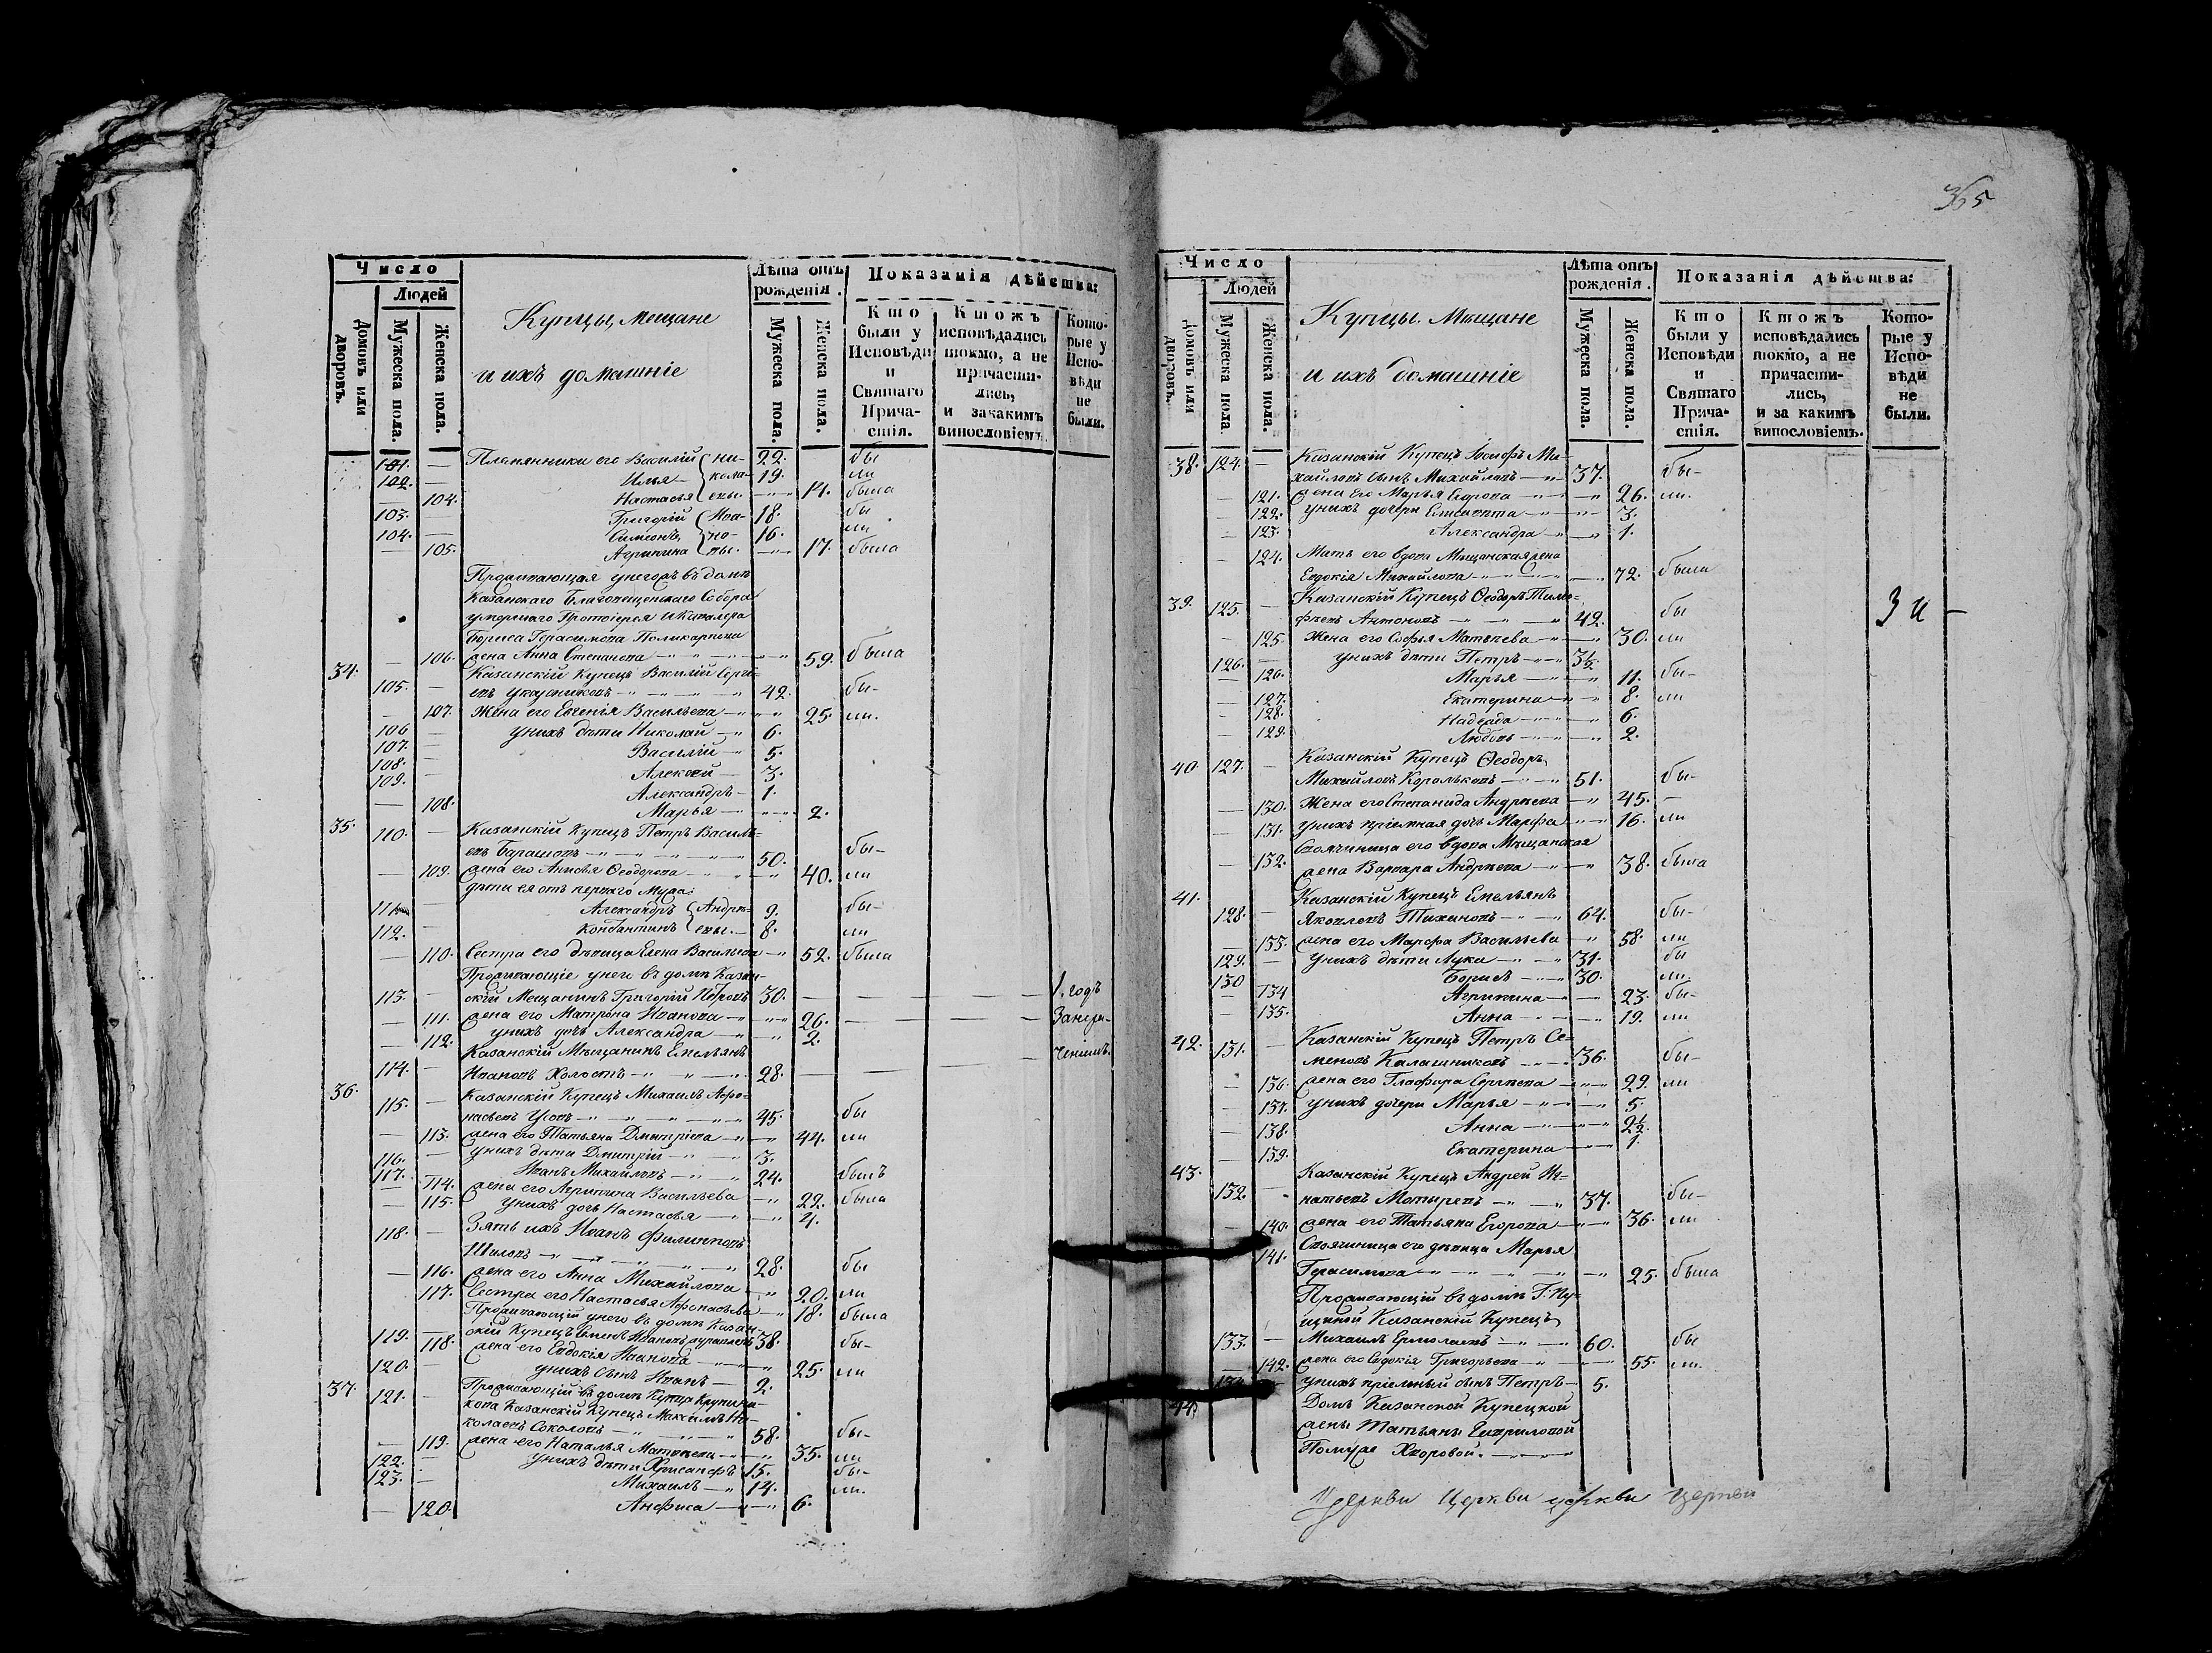 365
Число
Людей
Домовъ или дворовъ.
Мужеска пола.
Женска пола.
Купцы, Мещане
и ихъ домашніе
Лѣта отъ рожденія.
Мужеска пола.
Женска пола.
Показанія дѣйства:
Кто были у Исповѣди и Святаго Причастія.
Ктожъ исповѣдались токмо, а не причастились, и закакимъ винословіемъ.
Которые у Исповѣди не были.
101. — Племянники его Василій Ни- 22. бы
102. — Илья кола- 19. ли
— 104. Настасья евы. 14. была
103. — Григорій Ива- 18. бы
104. — Симеонъ но- 16. ли
— 105. Агрипина вы. 17. была
Проживающая унегожъ въ домѣ
Казанскаго Благовещенскаго Собора
умершаго Протоіерея и Кавалера
Бориса Герасимова Поликарпова
— 106. жена Анна Степанова 59. была
34. Казанскій Купецъ Василій Серге-
105. — евъ Укусниковъ 42. бы-
— 107. Жена его Евгенія Васильева 25. ли.
106 — унихъ дѣти Николай 6.
107. — Василій 5.
108. — Алексѣй 3.
109. — Александръ 1.
— 108. Марья 2.
35. 110. — Казанскій Купецъ Петръ Василь-
евъ Барашовъ 50. бы-
— 109. жена его Анисья Ѳеодорова 40. ли
дѣти ея отъ перваго мужа:
111. — Александръ Андре- 9. бы-
112. — Константинъ евы. 8. ли
— 110. Сестра его дѣвица Елена Васильева 52. была
Проживающіе унего въ домѣ Казан-
113. — скій Мещанинъ Григорій Петровъ 30. 1. годъ
— 111. жена его Матрена Иванова 26. Занере-
— 112. унихъ дочь Александра 2.
Казанскій Мѣщанинъ Емельянъ ченіимъ.
114. — Ивановъ Холостъ 28.
36. Казанскій Купецъ Михаилъ Афо-
115. — насьевъ Усовъ 45. бы
— 113. жена его Татьяна Дмитріева 44. ли
116. — унихъ дѣти Дмитрій 3.
117. — Иванъ Михайловъ 24. былъ
— 114. жена его Агрипина Васильева 22. была
— 115. унихъ дочь Настасья 4.
118. — Зять ихъ Иванъ Филипповъ
Шиловъ 28. бы
— 116. жена его Анна Михайлова 20. ли
117. Сестра его Настасья Афонасьева 18. была
Проживающій унего въ домѣ Казан-
119. — скій Купецъ Семенъ Ивановъ Журавлевъ 38. бы-
118. жена его Евдокія Иванова 25. ли
120. — унихъ сынъ Иванъ 2.
37. 121. — Проживающій въ домѣ Купца Крупени-
кова Казанскій Купецъ Максимъ Ни-
колаевъ Соколовъ 58. бы-
— 119. жена его Наталья Матвеева 35. ли
122. — унихъ дѣти Хрисанфъ 15. бы-
123. — Михаилъ 14. ли.
— 120. Анфиса 6.
Число
Людей
Домовъ или дворовъ.
Мужеска пола.
Женска пола.
Купцы. Мѣщане
и ихъ домашніе
Лѣта отъ рожденія.
Мужеска пола.
Женска пола.
Показанія дѣйства:
Кто были у Исповѣди и Святаго Причастія.
Ктожъ исповѣдались токмо, а не причастились, и за какимъ винословіемъ.
Которые у Исповѣди не были.
38. 124. — Казанскій Купецъ Іосифъ Ми-
хайловъ сынъ Михайловъ 37. бы-
— 121. жена его Марья Егорова 26. ли.
— 122. унихъ дочери Елисавета 3.
— 123. Александра 1.
— 124. Мать его вдова Мѣщанская жена
Евдокія Михайлова 72. была
39. 125. — Казанскій Купецъ Ѳеодоръ Тимо-
феевъ Антоновъ 42. бы
— 125. Жена его Софья Матвеева 30. ли
126. — унихъ дѣти Петръ 3½
— 126. Марья 11. бы-
— 127. Екатерина 8. ли
— 128. Надежда 6.
— 129. Любовь 2.
40 127. — Казанскій Купецъ Ѳеодоръ
Михайловъ Корольковъ 51. бы-
— 130. Жена его Степанида Андреева 45. —
— 131. унихъ пріемная дочь Марфа 16. ли
Своячиница его вдова Мѣщанская
— 132. жена Варвара Андреева 38. была
41. Казанскій Купецъ Емельянъ
128. — Яковлевъ Тихиновъ 64. бы-
— 133. жена его Марфа Васильева 58. ли
129. — унихъ дѣти Лука 31. бы
130 — Борисъ 30. ли.
— 134 Агрипина 23. бы-
— 135. Анна 19. ли
42. 131. — Казанскій Купецъ Петръ Се-
меновъ Калашниковъ 36. бы-
— 136. жена его Глафира Сергеева 29. ли
— 137. унихъ дочери Марья 5.
— 138. Анна 2½
— 139. Екатерина 1.
43. Казанскій Купецъ Андрей Иг-
132. — натьевъ Мотыревъ 37. бы-
— 140. жена его Татьяна Егорова 36. ли
141. Своячиница его дѣвица Марья
Герасимова 25. была
Проживающій въ домѣ Г. Пу-
щиной Казанскій Купецъ
133. — Михаилъ Ермолаевъ 60. бы
— 142. жена его Евдокія Григорьева 55. ли.
134. — унихъ пріемный сынъ Петръ 5.
44. Домъ Казанской Купецкой
жены Татьяны Гавриловой
Помуже Хворовой.
Церкви Церкви церкви церкви